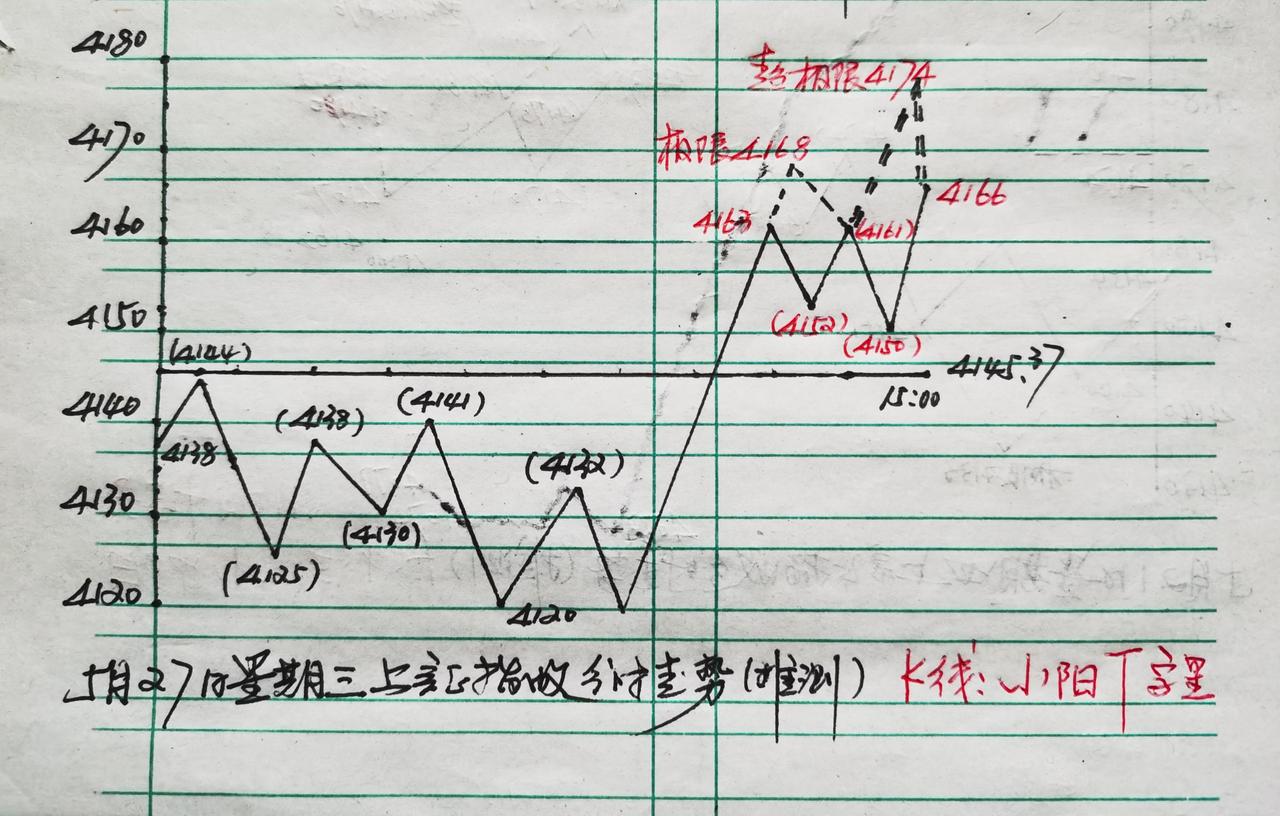 4180
超极限4174
4170
极限4168
4166
4160
4163
(4161)
4150
(4152)
(4150)
(4144)
4145.37
15:00
4140
(4141)
(4138)
4138
(4132)
4130
(4130)
(4125)
4120
4120
5月27日星期三上证指数分时走势(推测) K线:小阳丁字星